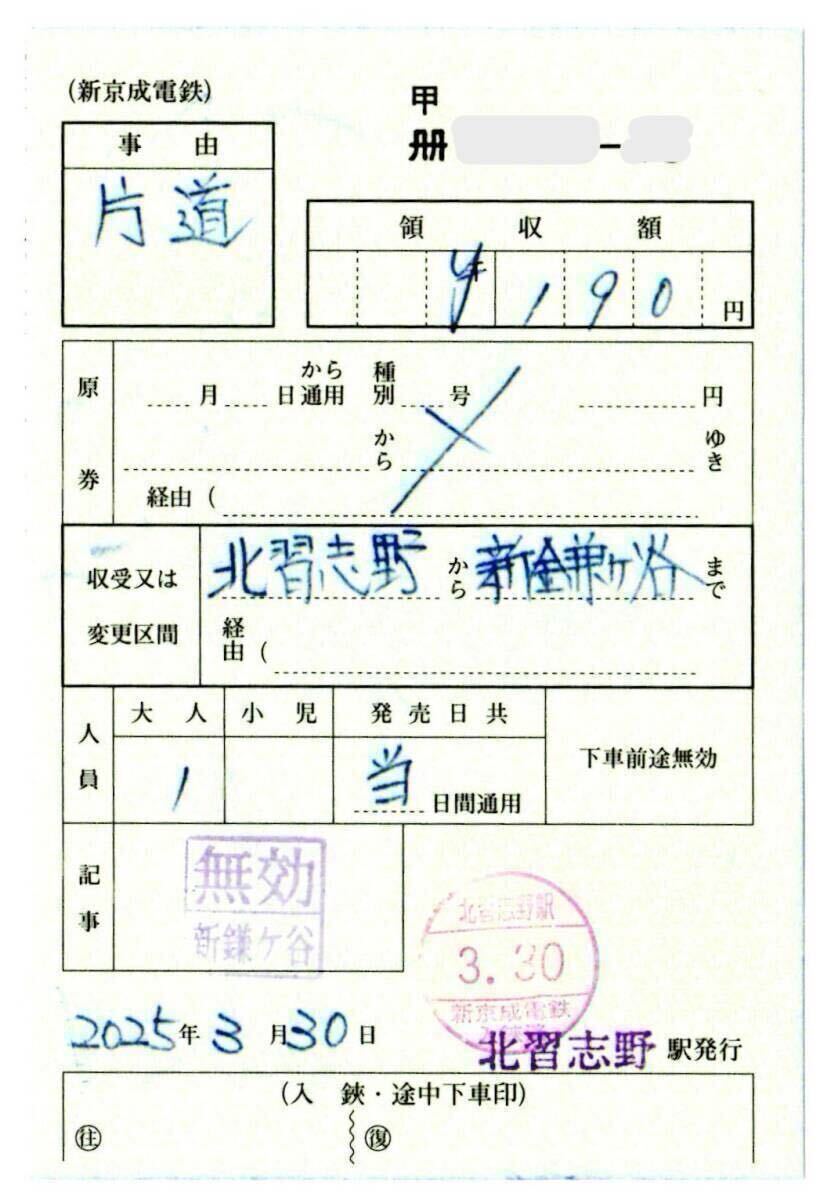 (新京成電鉄)
甲
册 –
事由
片道
領収額
¥190円
原券
月日から通用 種別 号 円
から ゆき
経由(
収受又は変更区間
北習志野から新鎌ヶ谷まで
経由(
人員
大人 小児 発売日共
1 当日間通用
下車前途無効
記事
無効
新鎌ケ谷
北習志野駅
3.30
新京成電鉄
2025年3月30日
北習志野駅発行
(入鋏・途中下車印)
往 復